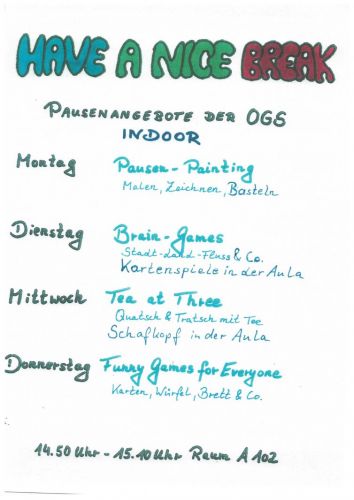 HAVE A NICE BREAK
PAUSENANGEBOTE DER OGS
INDOOR
Montag Pausen-Painting
Malen, Zeichnen, Basteln
Dienstag Brain-Games
Stadt-Land-Fluss & Co.
Kartenspiele in der Aula
Mittwoch Tea at Three
Quatsch & Tratsch mit Tee
Schafkopf in der Aula
Donnerstag Funny Games for Everyone
Karten, Würfel, Brett & Co.
14.50 Uhr - 15.10 Uhr Raum A 102